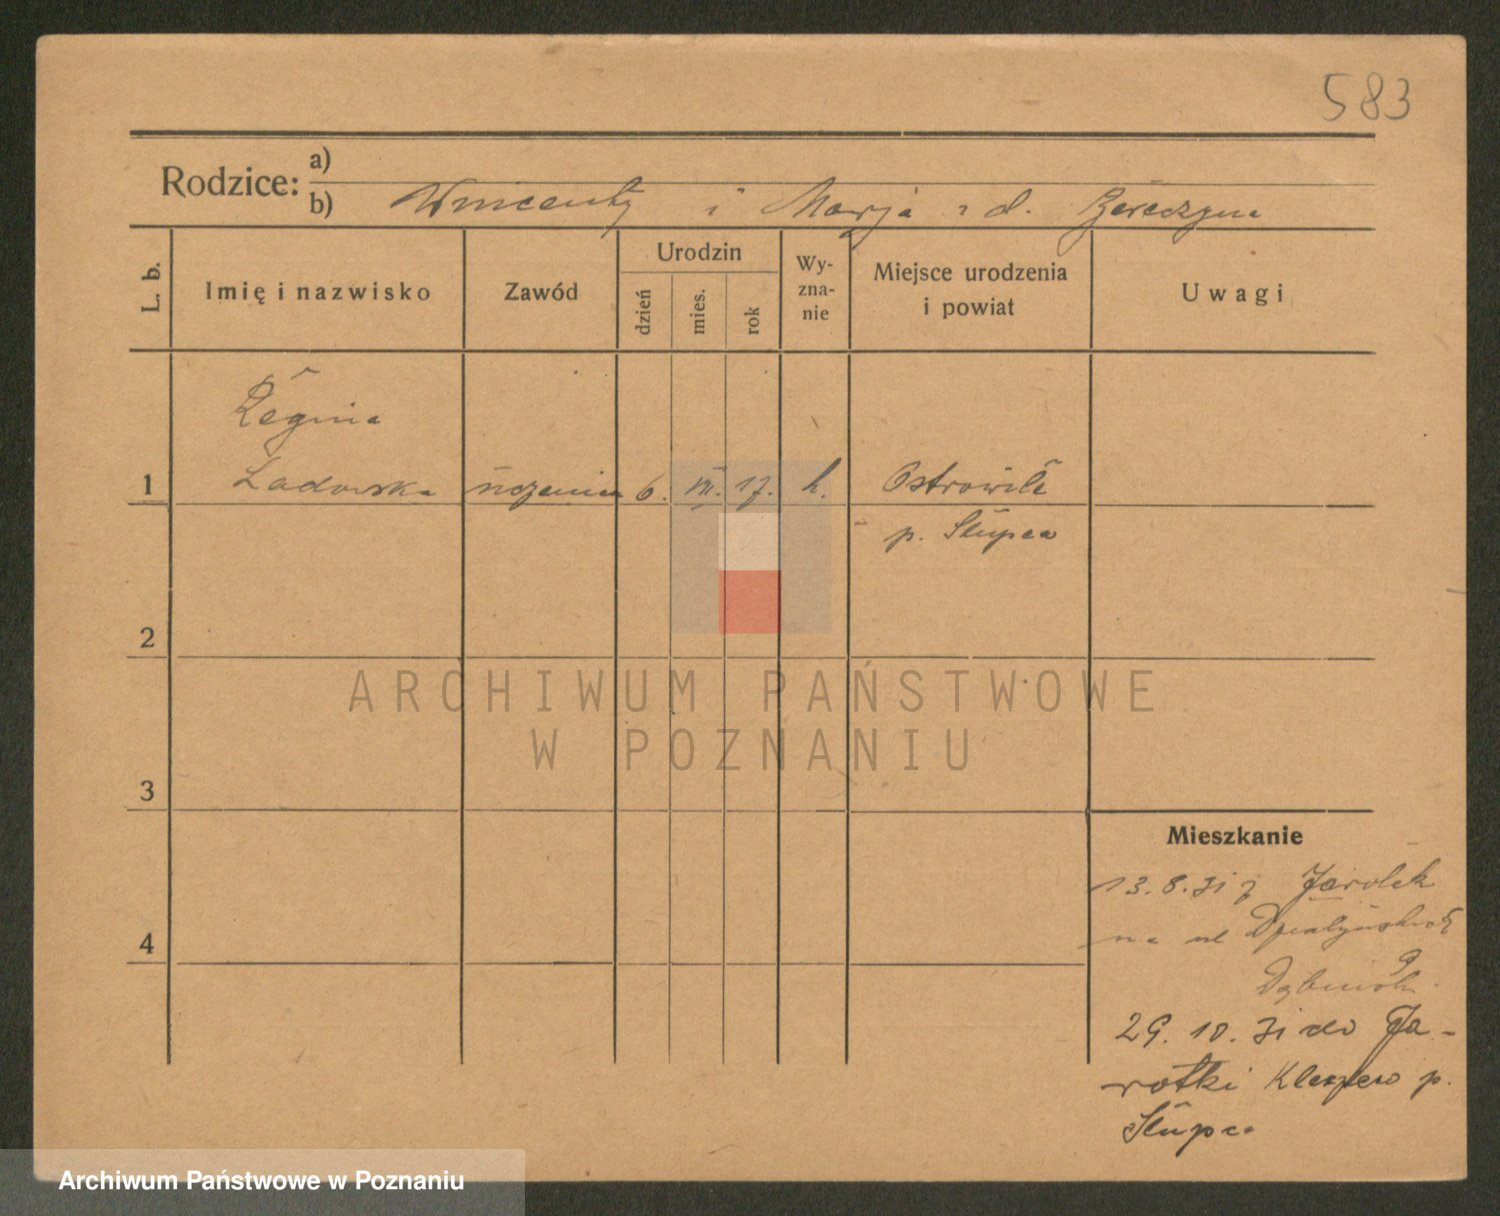 583
Rodzice: a)
b) Wincenty i Marja z d.
L. b.
Imię i nazwisko
Zawód
Urodzin
dzień
mies.
rok
Wy-
zna-
nie
Miejsce urodzenia
i powiat
Uwagi
Regina
1 Ladowska uczenica 6. VII. 17. k. Ostrowite
p. Słupca
2
ARCHIWUM PAŃSTWOWE
W POZNANIU
3
Mieszkanie
13.8.31 z
na ul Działyńskich 9
4
29. 10. 31 do Ja-
rotki Kleczew p.
Słupca
Archiwum Państwowe w Poznaniu